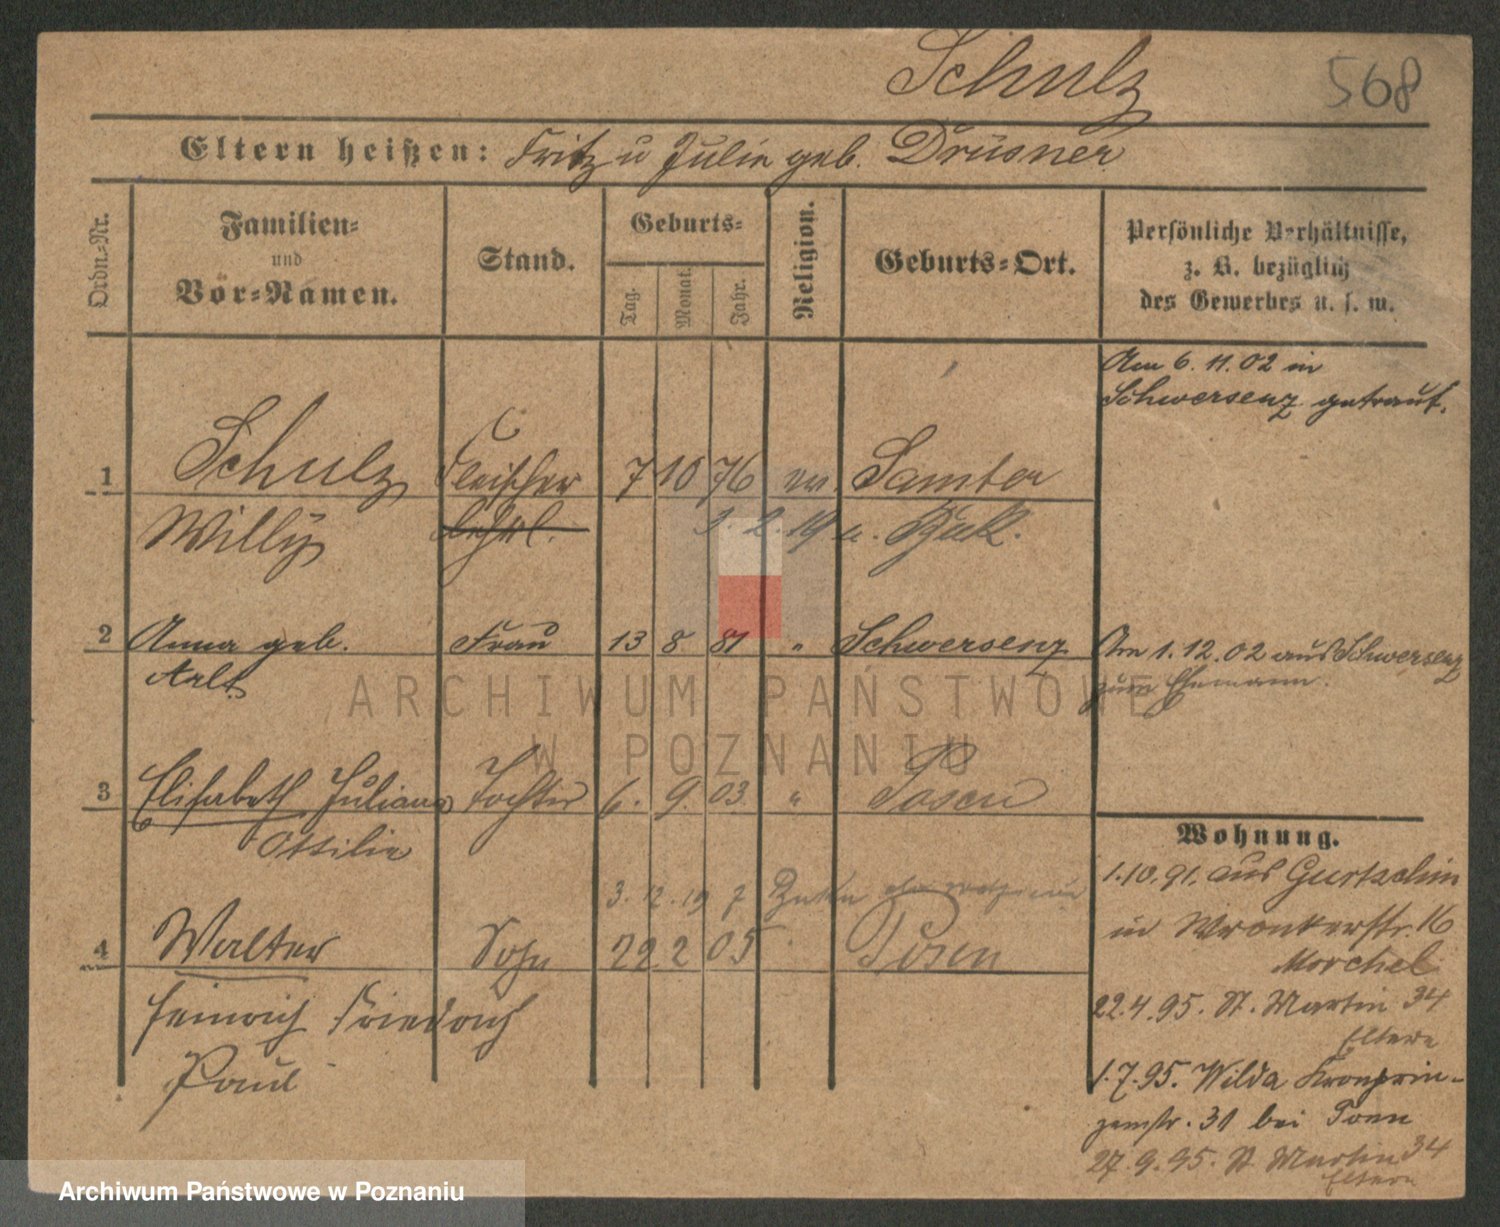 Schulz 568
Eltern heißen: Fritz u Julie geb. Drüsner
Ordn.-Nr.
Familien-
und
Vor-Namen.
Stand.
Geburts-
Tag.
Monat.
Jahr.
Religion.
Geburts-Ort.
Persönliche Verhältnisse,
z. B. bezüglich
des Gewerbes u. s. w.
Am 6. 11. 02 in
Schwersenz getraut.
1 Schulz Fleischer 7 10 76 ev. Samter
Willy 3. 2. 19 n. Buk.
2 Anna geb. Frau 13 8 81 " Schwersenz Am 1. 12. 02 aus Schwersenz
zum Ehemann.
3 Elisabeth Juliana Tochter 6. 9. 03 " Posen
Ottilie
3. 12. 19
4 Walter Sohn 22 2 05 Posen
Heinrich Friedrich
Paul
Wohnung.
1.10.91. aus Gurtschin
in Wronkerstr. 16
Morchel
22.4.95. St. Martin 34
Eltern
1.7.95. Wilda Kronprin-
zenstr. 31 bei Tonn
27.9.95. St Martin 34
Eltern
ARCHIWUM PAŃSTWOWE
W POZNANIU
Archiwum Państwowe w Poznaniu